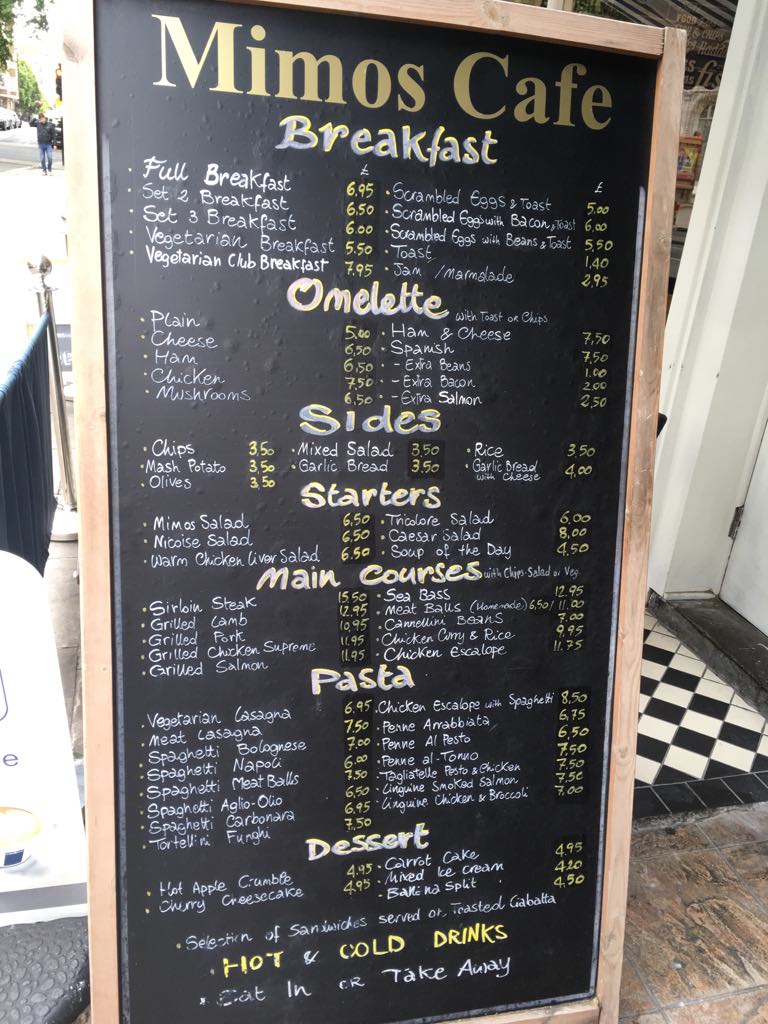 Mimos Cafe
Breakfast
£
· Full Breakfast 6.95
· Set 2 Breakfast 6.50
· Set 3 Breakfast 6.00
· Vegetarian Breakfast 5.50
· Vegetarian Club Breakfast 7.95
£
· Scrambled Eggs & Toast 5.00
· Scrambled Eggs with Bacon & Toast 6.00
· Scrambled Eggs with Beans & Toast 5,50
· Toast 1,40
· Jam / Marmalade 2,95
Omelette with Toast or Chips
· Plain 5.00
· Cheese 6,50
· Ham 6,50
· Chicken 7,50
· Mushrooms 6,50
· Ham & Cheese 7,50
· Spanish 7.50
· - Extra Beans 1.00
· - Extra Bacon 2.00
· - Extra Salmon 2,50
Sides
· Chips 3,50
· Mash Potato 3,50
· Olives 3,50
· Mixed Salad 3,50
· Garlic Bread 3,50
· Rice 3,50
· Garlic Bread with Cheese 4,00
Starters
· Mimos Salad 6,50
· Nicoise Salad 6,50
· Warm Chicken Liver Salad 6.50
· Tricolore Salad 6,00
· Caesar Salad 8,00
· Soup of the Day 4,50
Main Courses with Chips-Salad or Veg.
· Sirloin Steak 15.50
· Grilled Lamb 12.95
· Grilled Pork 10.95
· Grilled Chicken Supreme 11.95
· Grilled Salmon 11.95
· Sea Bass 12.95
· Meat Balls (Homemade) 6,50/11.00
· Cannellini Beans 7,00
· Chicken Curry & Rice 9.95
· Chicken Escalope 11.75
Pasta
· Vegetarian Lasagna 6.95
· Meat Lasagna 7.50
· Spaghetti Bolognese 7.00
· Spaghetti Napoli 6.00
· Spaghetti Meat Balls 7.50
· Spaghetti Aglio-Olio 6,50
· Spaghetti Carbonara 6.95
· Tortellini Funghi 7.50
· Chicken Escalope with Spaghetti 8,50
· Penne Arrabbiata 6,75
· Penne Al Pesto 6,50
· Penne al-Tonno 7.50
· Tagliatelle Pesto & Chicken 7.50
· Linguine Smoked Salmon 7.50
· Linguine Chicken & Broccoli 7,00
Dessert
· Hot Apple Crumble 4.95
· Cherry Cheesecake 4.95
· Carrot Cake 4.95
· Mixed Ice Cream 4.20
· Banana Split 4.50
· Selection of Sandwiches served on Toasted Ciabatta
· HOT & COLD DRINKS
· Eat In or Take Away